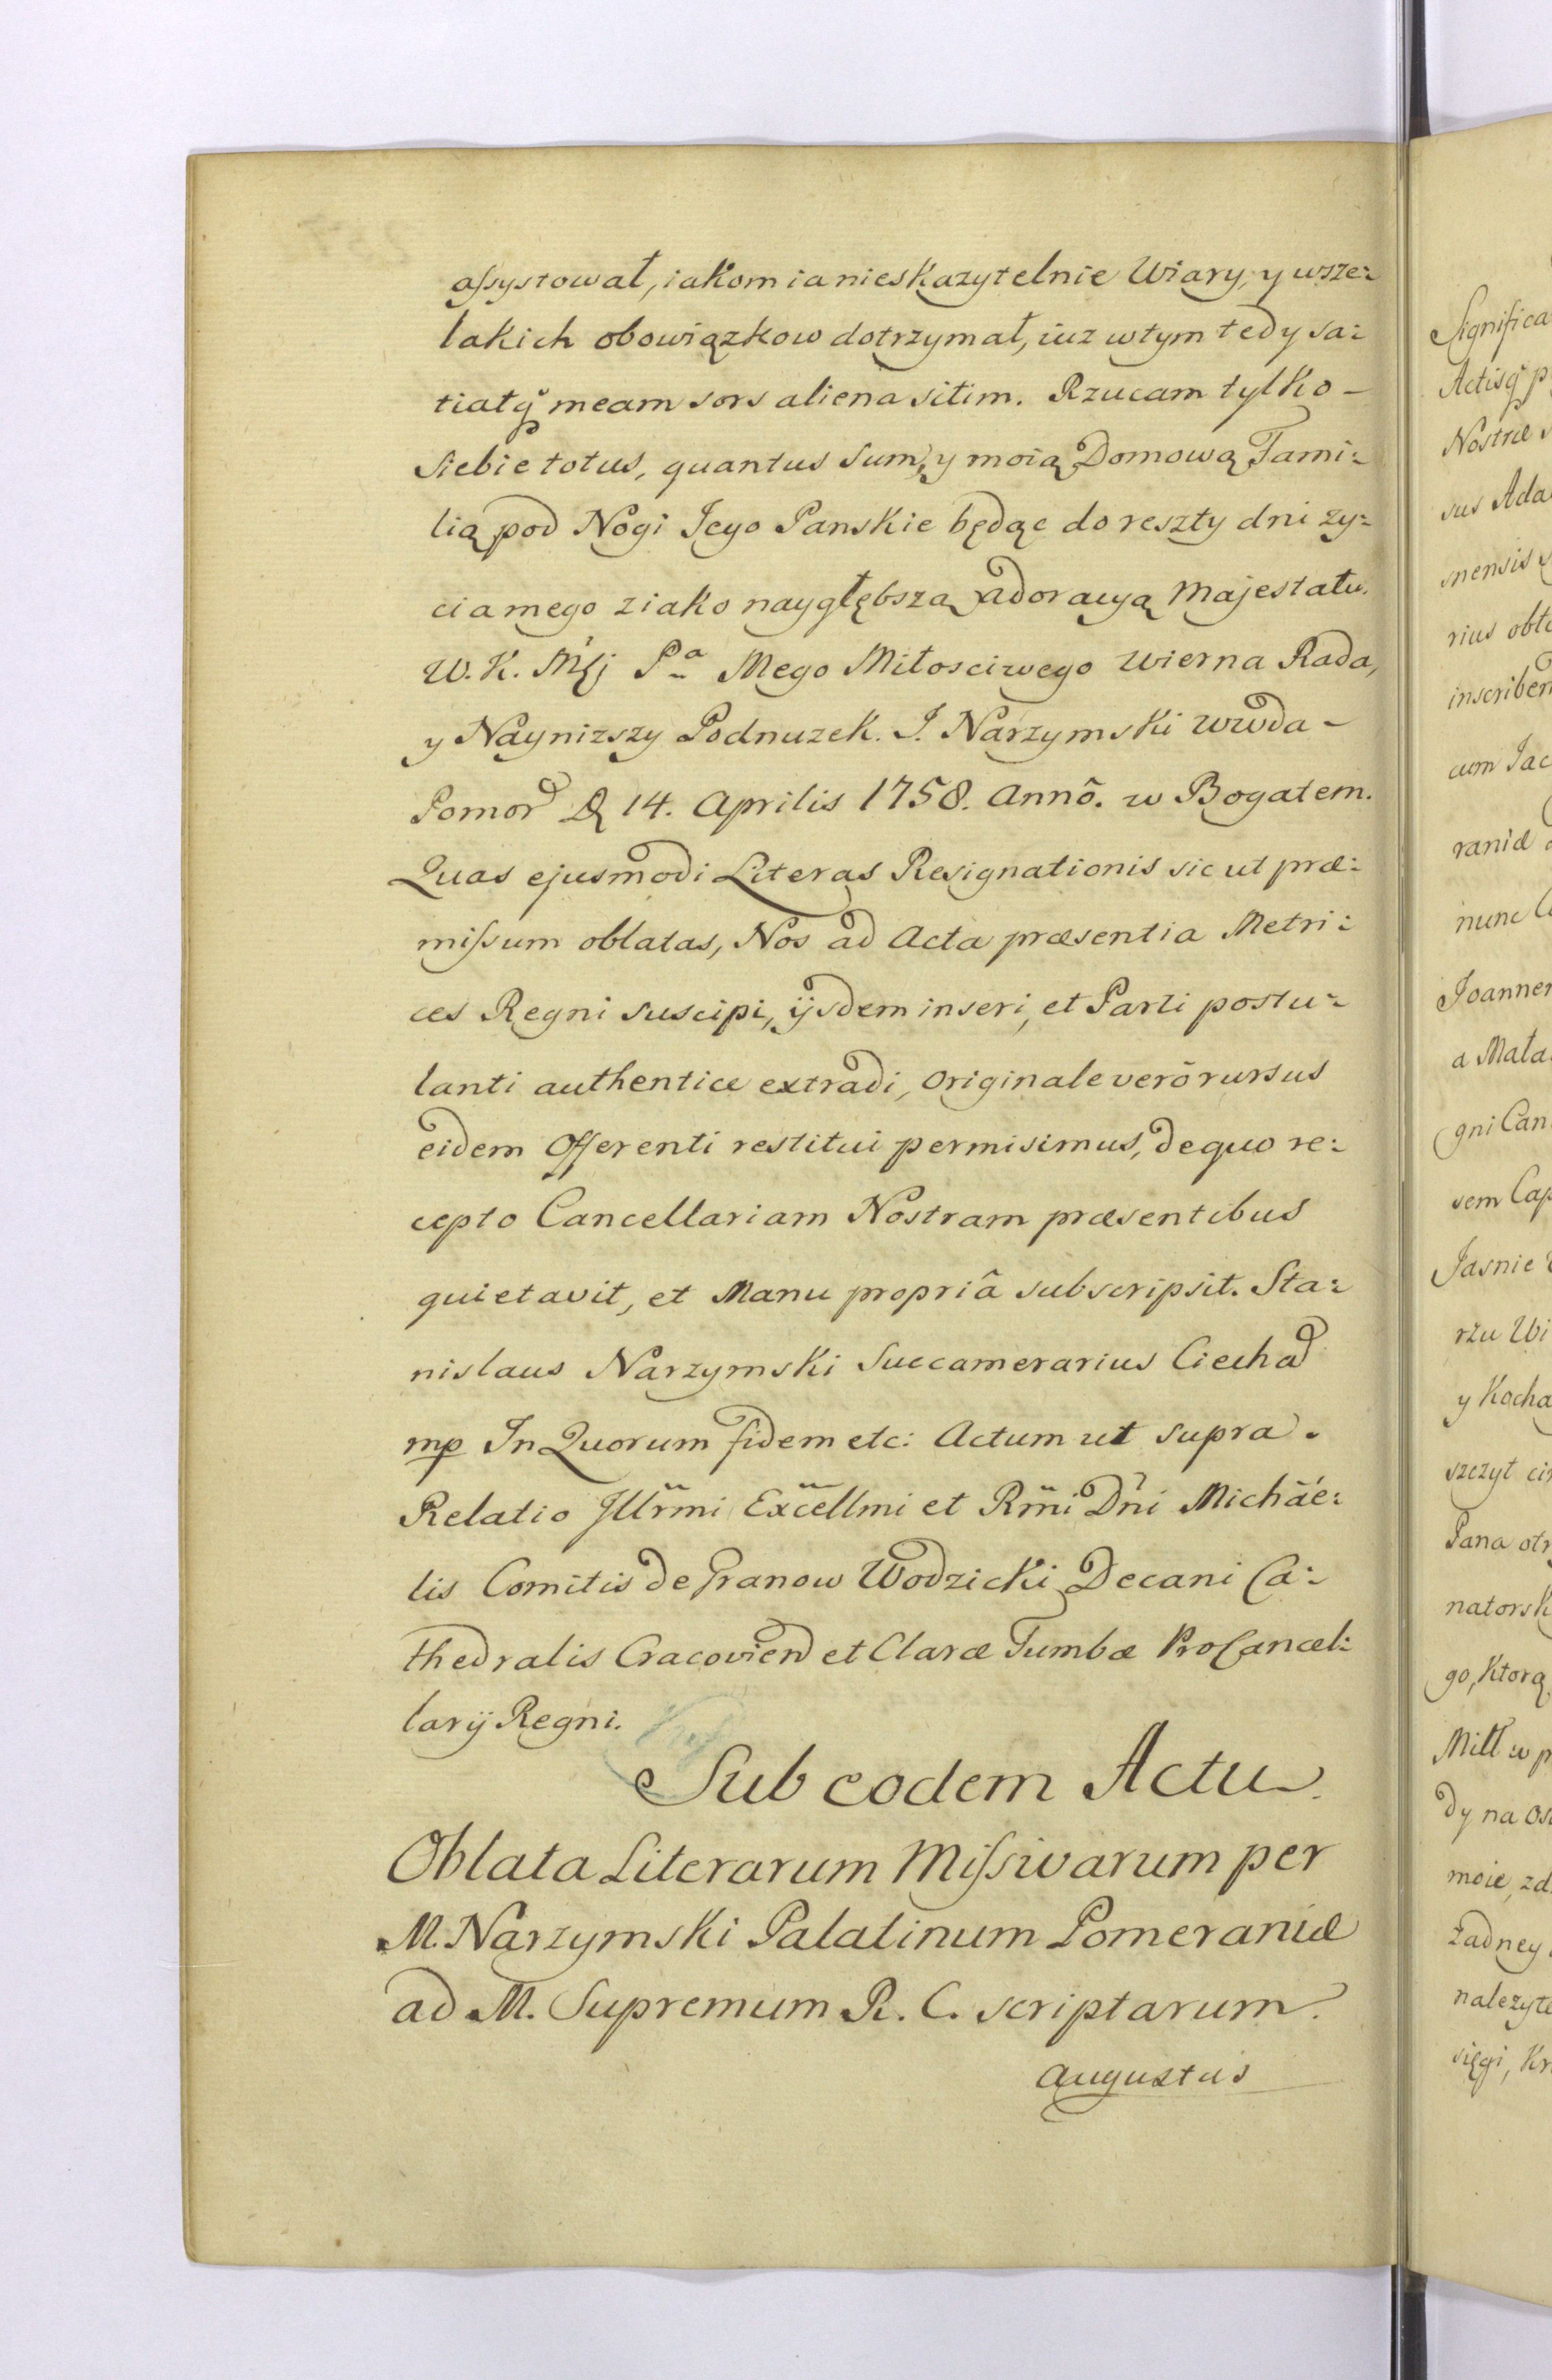 assystował, iakom ia nieskazytelnie Wiary, y wsze:
lakich obowiązkow dotrzymał, iuz w tym tedy sa:
tiatq meam sors aliena sitim. Rzucam tylko -
siebie totus, quantus sum, y moią Domową Fami:
lią pod Nogi Jego Panskie będąc do reszty dni zy:
cia mego z iako naygłębszą adoracyą Majestatu.
W. K. Mśj Pa Mego Miłosciwego Wierna Rada,
y Naynizszy Podnuzek. J. Narzymski Wwoda -
Pomor D 14. Aprilis 1758. Annõ. w Bogatem.
Quas ejusmodi Literas Resignationis sic ut præ:
missum oblatas, Nos ad Acta præsentia Metri:
ces Regni suscipi, ijsdem inseri, et Parti postu:
lanti authentice extradi, Originale verõ rursus
eidem Offerenti restitui permisimus, de quo re:
cepto Cancellariam Nostram præsentibus
quietavit, et Manu propriâ subscripsit. Sta:
nislaus Narzymski Succamerarius Ciechad
mp In Quorum fidem etc: Actum ut supra.
Relatio Jllr̃mi Exc̃ellmi et Rm̃i Dñi Michãé:
lis Comitis de Granow Wodzicki Decani Ca:
thedralis Cracovien et Claræ Tumbæ ProCancel:
larij Regni.
Sub eodem Actu.
Oblata Literarum Missivarum per
M. Narzymski Palatinum Pomeraniæ
ad M. Supremum R. C. scriptarum.
Augustus
Significa
Actisq p
Nostræ
sus Ada
snensis
rius obt
inscriben
cum Jac
raniæ
nunc
Joannem
a Mała
gni Can
sem Cap
Jasnie
rzu Wi
y Kocha
szczyt
Pana otr
natorsk
go, Ktorą
Miłł w p
dy na os
moie, zd
żadney
nalezyte
sięgi, Kr